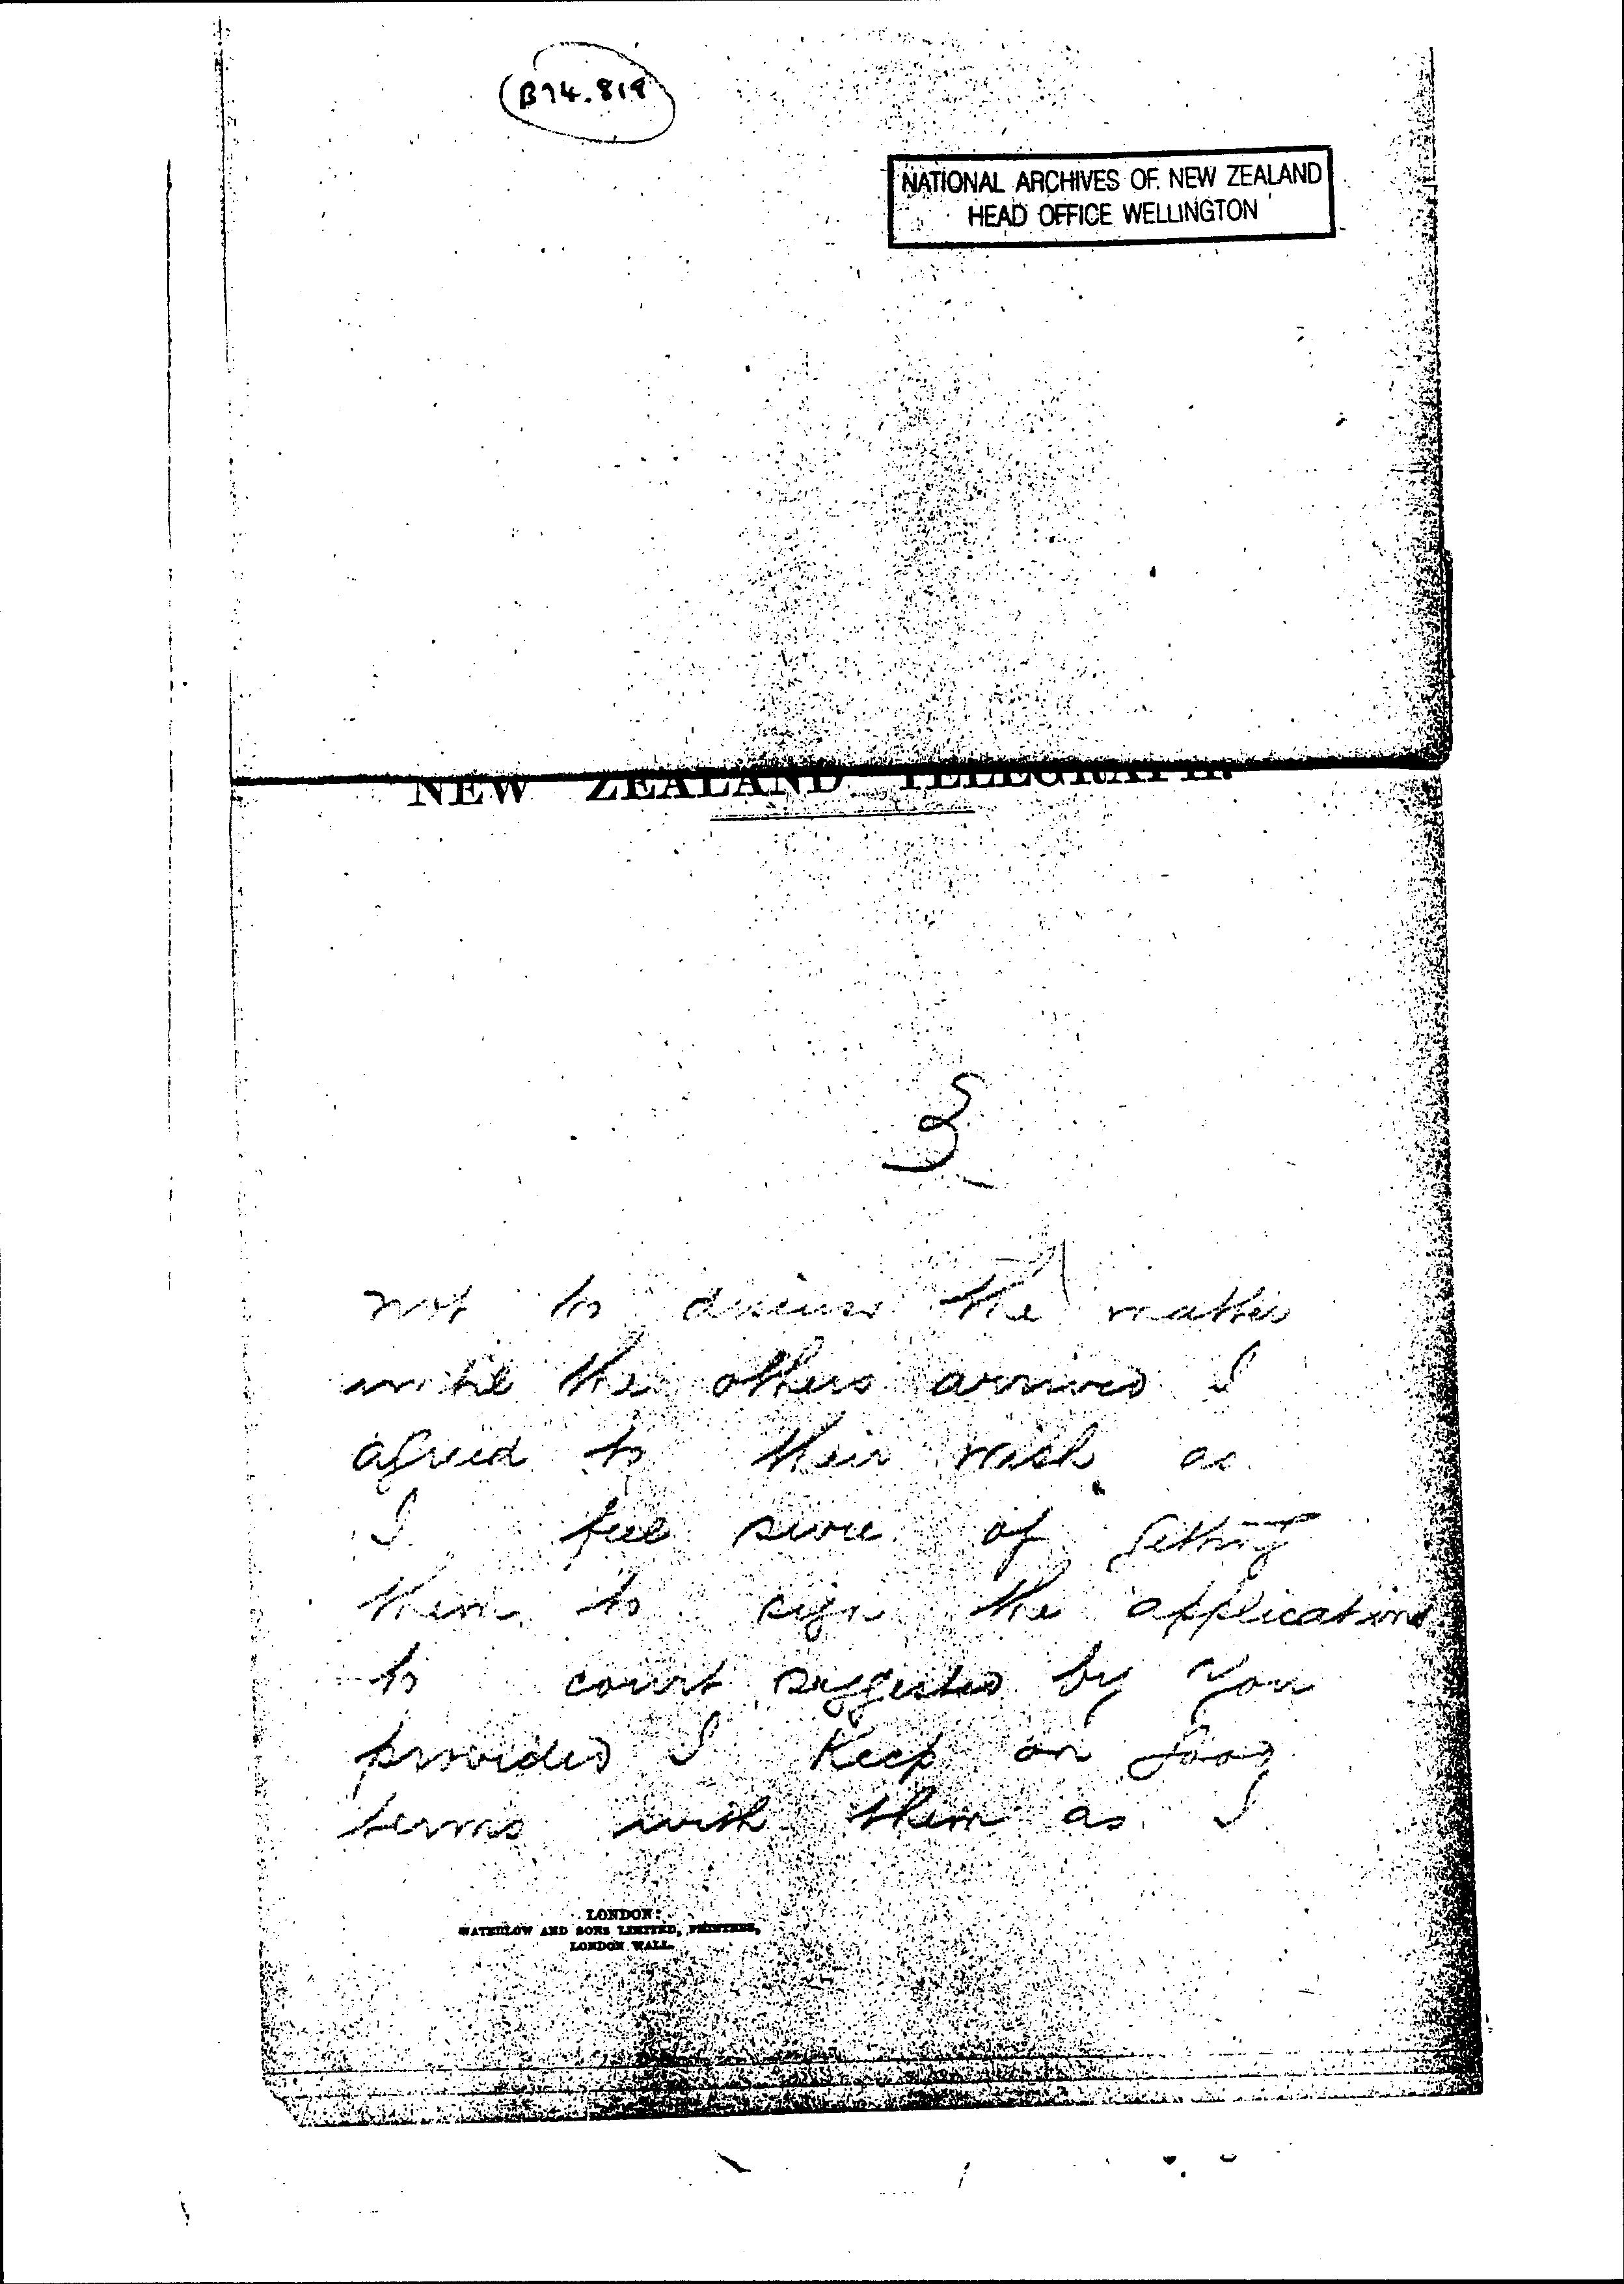 B74.818
NATIONAL ARCHIVES OF NEW ZEALAND
HEAD OFFICE WELLINGTON
NEW ZEALAND TELEGRAPH.
3
not to discuss the matter
until the others arrived I
agreed to their wish as
I feel sure of getting
them to sign the application
to court suggested by you
provided I keep on good
terms with them as I
LONDON:
WATERLOW AND SONS LIMITED, PRINTERS,
LONDON WALL.